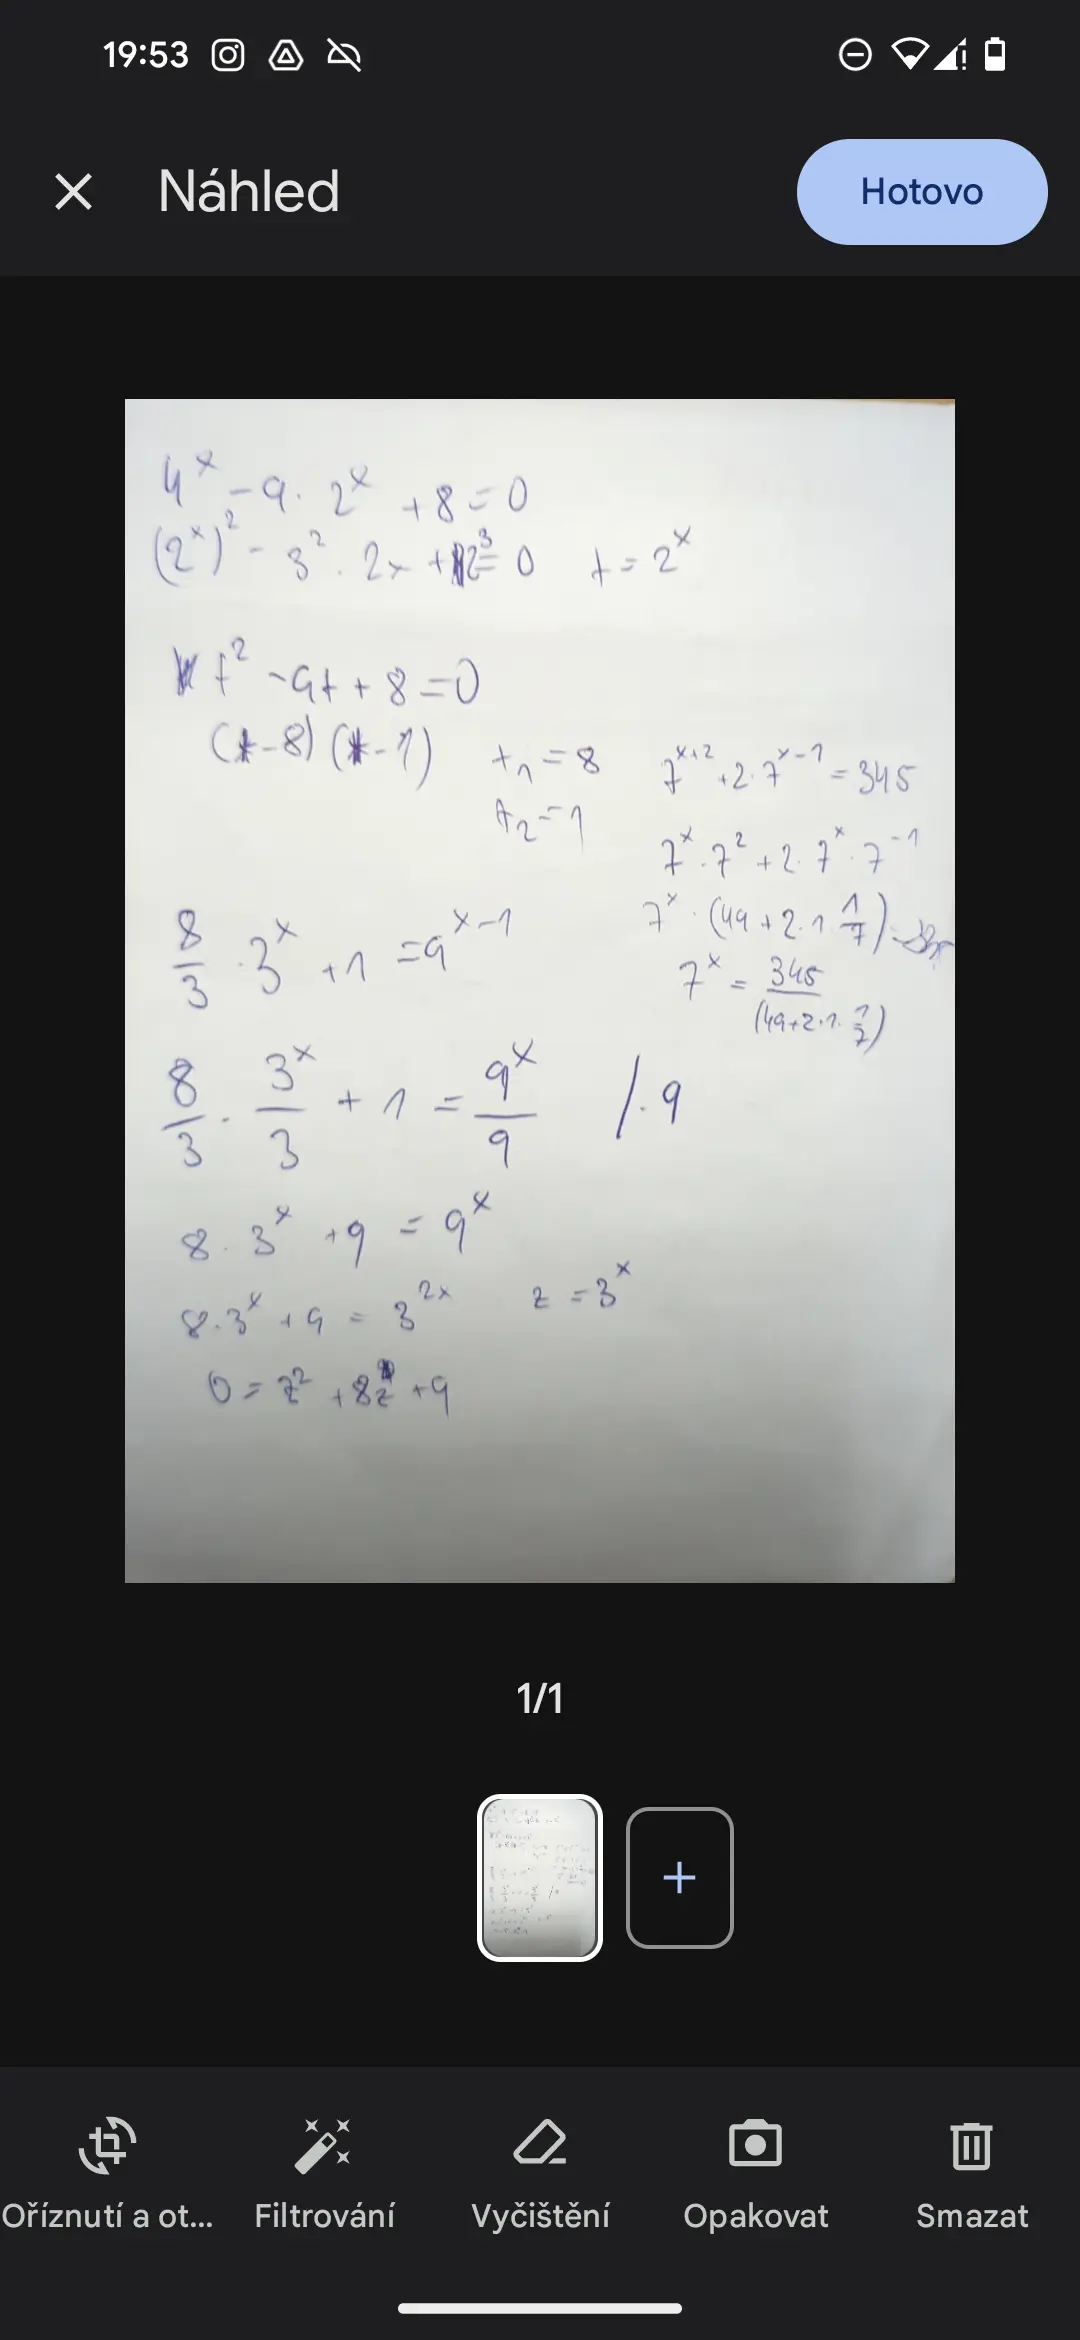 19:53
Náhled
Hotovo
4^x - 9 · 2^x + 8 = 0
(2^x)^2 - 3^2 · 2x + 2^3 = 0   t = 2^x
t^2 - 9t + 8 = 0
(t - 8) (t - 1)   t_1 = 8
t_2 = 1
7^{x+2} + 2 · 7^{x-1} = 345
7^x · 7^2 + 2 · 7^x · 7^{-1}
7^x · (49 + 2 · 1 \frac{1}{7}) =
7^x = \frac{345}{(49 + 2 · 1 · \frac{1}{7})}
\frac{8}{3} · 3^x + 1 = 9^{x-1}
\frac{8}{3} · \frac{3^x}{3} + 1 = \frac{9^x}{9}   / · 9
8 · 3^x + 9 = 9^x
8 · 3^x + 9 = 3^{2x}   z = 3^x
0 = z^2 + 8z + 9
1/1
Oříznutí a ot...
Filtrování
Vyčištění
Opakovat
Smazat